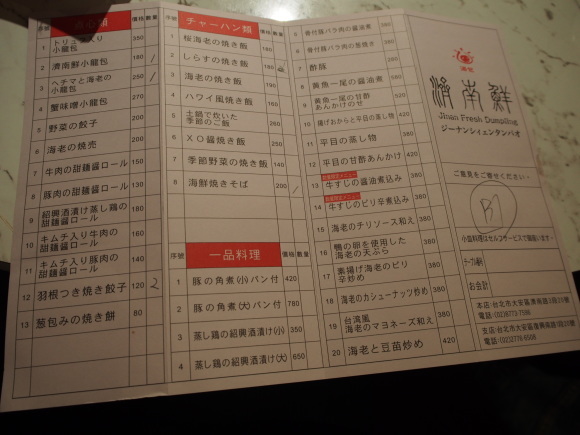 序號 点心類 價格 數量
1 トリュフ入り小籠包 350
2 濟南鮮小籠包 180 /
3 ヘチマと海老の小籠包 250 /
4 蟹味噌小籠包 270
5 野菜の餃子 200
6 海老の焼売 200
7 牛肉の甜麺醤ロール 150
8 豚肉の甜麺醤ロール 130
9 紹興酒漬け蒸し鶏の甜麺醤ロール 180
10 キムチ入り牛肉の甜麺醤ロール 160
11 キムチ入り豚肉の甜麺醤ロール 140
12 羽根つき焼き餃子 120 2
13 葱包みの焼き餅 80
序號 チャーハン類 價格 數量
1 桜海老の焼き飯 180
2 しらすの焼き飯 180
3 海老の焼き飯 190
4 ハワイ風焼き飯 160
5 土鍋で炊いた季節のご飯 260
6 XO醤焼き飯
7 季節野菜の焼き飯 140
8 海鮮焼きそば 200 /
序號 一品料理 價格 數量
1 豚の角煮(小)パン付 420
2 豚の角煮(大)パン付 780
3 蒸し鶏の紹興酒漬け(小) 350
4 蒸し鶏の紹興酒漬け(大) 650
5 骨付豚バラ肉の醤油煮 380
6 骨付豚バラ肉の葱焼き 380
7 酢豚 380
8 黄魚一尾の醤油煮
9 黄魚一尾の甘酢あんかけのせ 520
10 揚げおからと平目の蒸し物 420
11 平目の蒸し物 380
12 平目の甘酢あんかけ 420
13 牛すじの醤油煮込み 380
14 牛すじのピリ辛煮込み 380
15 海老のチリソース和え 380
16 鴨の卵を使用した海老の天ぷら 380
17 素揚げ海老のピリ辛炒め 380
18 海老のカシューナッツ炒め 380
19 台湾風海老のマヨネーズ和え 380
20 海老と豆苗炒め 420
濟南鮮
Jinan Fresh Dumpling
ジーナンシェンタンパオ
ご意見をご聞せください
小皿料理はセルフサービスで御座います
テーブル番号
お会計
本店:台北市大安區
電話:(02)8773-7596
支店:台北市大安區復興南路
電話:(02)2776-6508